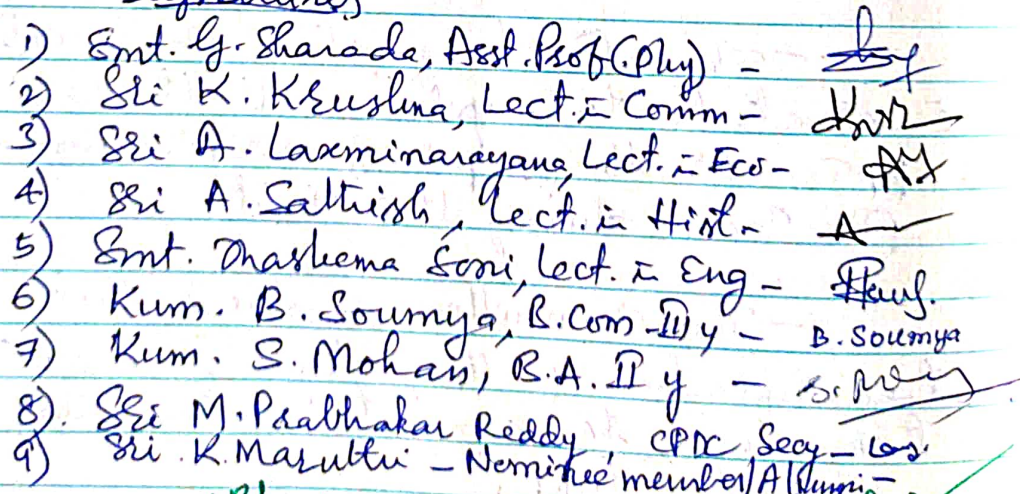 Signatures
1) Smt. G. Sharada, Asst. Prof (Phy) -
2) Sri K. Krushna, Lect. in Comm -
3) Sri A. Laxminarayana, Lect. in Eco -
4) Sri A. Sathish, Lect. in Hist. - A
5) Smt. Thasleema Soni, Lect. in Eng -
6) Kum. B. Soumya, B.Com - III y - B. Soumya
7) Kum. S. Mohan, B.A. II y -
8). Sri M. Prabhakar Reddy, CPDC Secy -
9) Sri. K. Maruthi - Nominee member/Alumni -